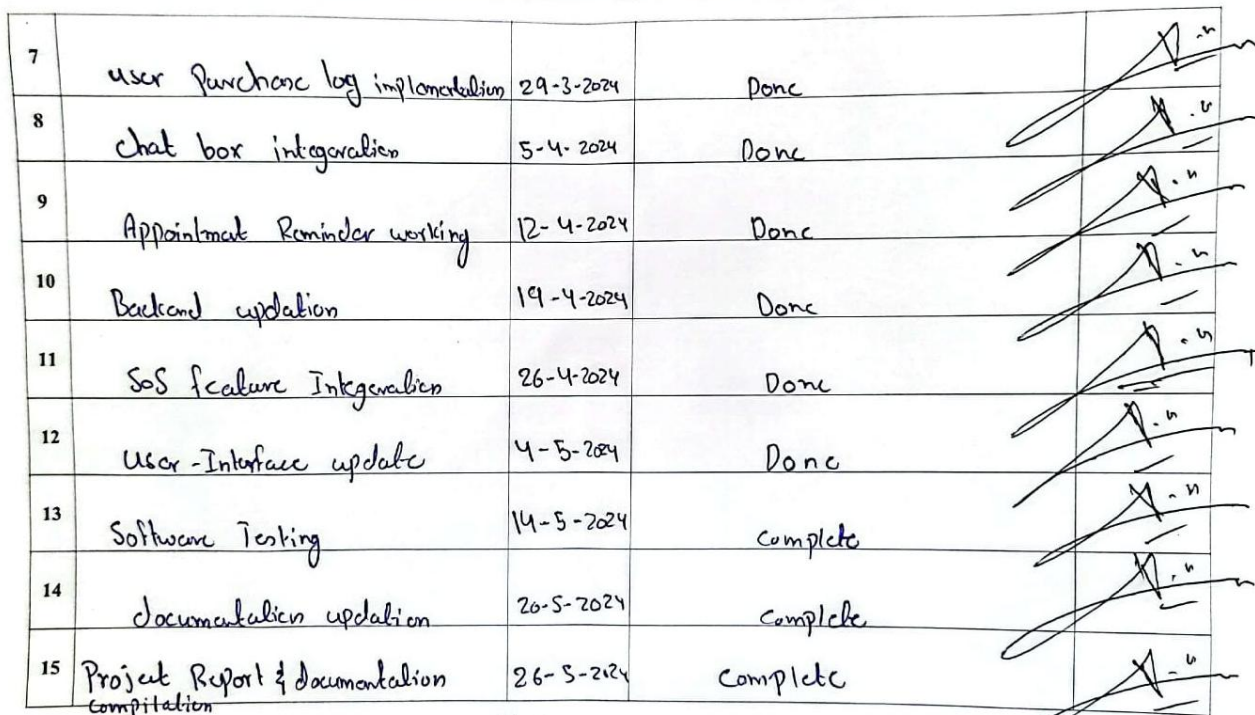 7 user Purchase log implementation 29-3-2024 Done
8 chat box integeration 5-4-2024 Done
9 Appointmat Reminder working 12-4-2024 Done
10 Backend updation 19-4-2024 Done
11 SOS feature Integeration 26-4-2024 Done
12 user-Interface update 4-5-2024 Done
13 Software Testing 14-5-2024 complete
14 documentation updation 20-5-2024 complete
15 Project Report & documentation 26-5-2024 complete
compilation